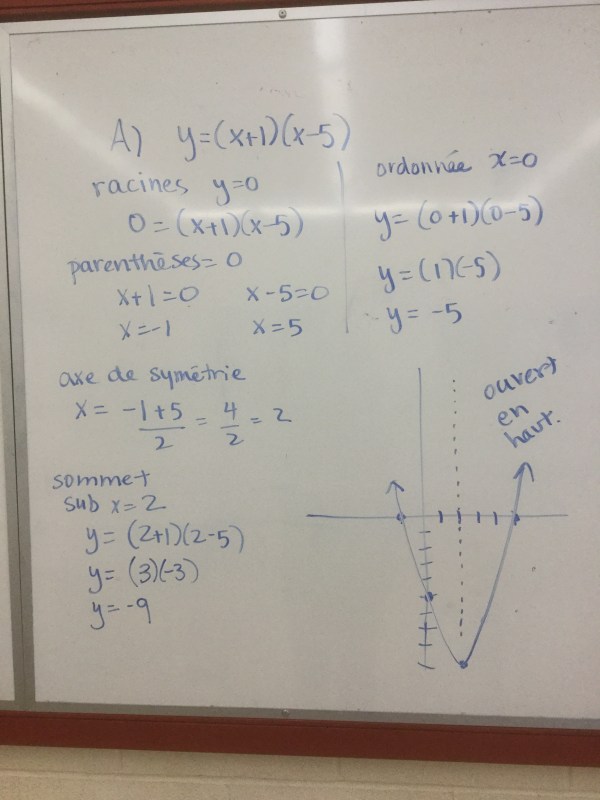 A) y=(x+1)(x-5)
racines y=0
0=(x+1)(x-5)
parenthèses=0
x+1=0 x-5=0
x=-1 x=5
ordonnée x=0
y=(0+1)(0-5)
y=(1)(-5)
y= -5
axe de symétrie
x= -1+5/2 = 4/2 = 2
sommet
sub x=2
y=(2+1)(2-5)
y=(3)(-3)
y=-9
ouvert
en
haut.